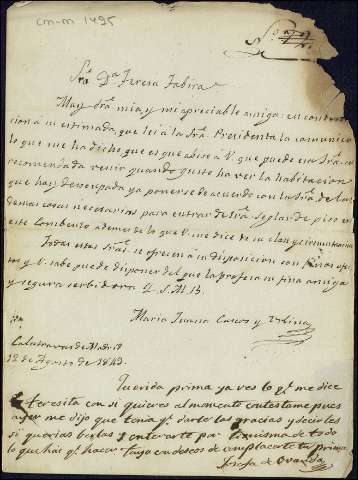 cm-m 1495
Sra. Da. Teresa Tabira
Muy Sra. mia, y mi apreciable amiga: en contesta-
cion á su estimada, que lei á la Sra. Presidenta la comunico
lo que me ha dicho, que es que abise á V. que puede esa Sra. re-
comendada venir quando guste ha ver la habitacion
que hay desocupada ya ponerse de acuerdo con la Sra. de las
demas cosas necesarias para entrar de Sra. Seglar de piso en
este Combento ademas de lo que V. me dice de su clase y circunstancias
Todas estas Sras. se ofrecen á su disposicion con finos afec-
tos y V. sabe puede disponer del que la profesa su fina amiga
y segura serbidora Q. S. M. B.
Maria Juana Cascos y Urbina
Calatravas de Madrid
12 de Agosto de 1842.
Querida prima ya ves lo qe. me dice
Teresita con si quieres al momento contestame pues
ayer me dijo que tenia qe. darte las gracias y decirles
si querias berlas y enterarte por de todo
lo que hay qe. hacer tuya en deseos de complacerte tu prima
Josefa de Ovando